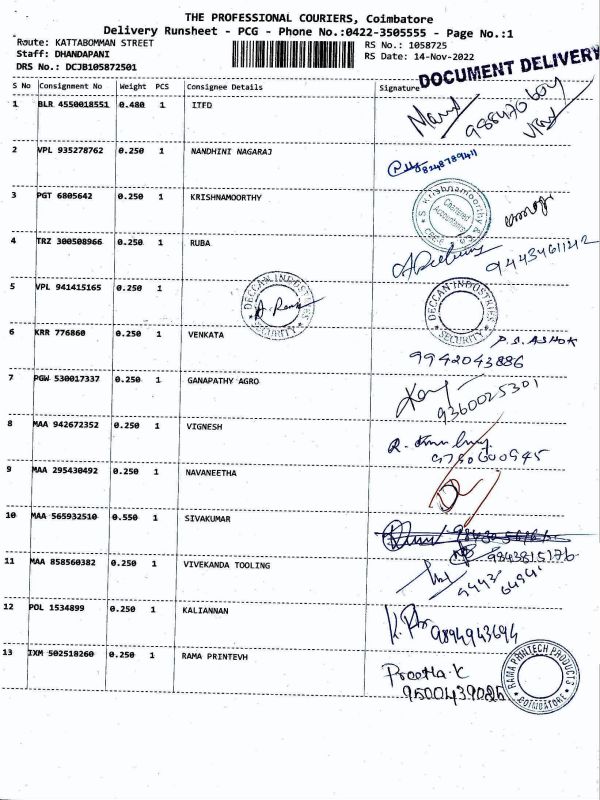 THE PROFESSIONAL COURIERS, Coimbatore
Delivery Runsheet - PCG - Phone No.:0422-3505555 - Page No.:1
Route: KATTABOMMAN STREET
Staff: DHANDAPANI
DRS No.: DCJB105872501
RS No.: 1058725
RS Date: 14-Nov-2022
DOCUMENT DELIVERY
S No Consignment No Weight PCS Consignee Details Signature
1 BLR 4550018551 0.480 1 ITFD
2 VPL 935278762 0.250 1 NANDHINI NAGARAJ
8248789411
3 PGT 6805642 0.250 1 KRISHNAMOORTHY
S. Krishnamoorthy &
Chartered
Accountants
4 TRZ 300508966 0.250 1 RUBA
5 VPL 941415165 0.250 1
DECCAN INDUSTRIES
SECURITY
DECCAN INDUSTRIES
SECURITY
P.S. ASHOK
6 KRR 776860 0.250 1 VENKATA
9942043886
7 PGW 530017337 0.250 1 GANAPATHY AGRO
9360025301
8 MAA 942672352 0.250 1 VIGNESH
9 MAA 295430492 0.250 1 NAVANEETHA
10 MAA 565932510 0.550 1 SIVAKUMAR
9843815176
11 MAA 858560382 0.250 1 VIVEKANDA TOOLING
12 POL 1534899 0.250 1 KALIANNAN
9894943694
13 IXM 502518260 0.250 1 RAMA PRINTEVH
Preetha.K
9500439026
RAMA PRINTECH PRODUCTS
COIMBATORE